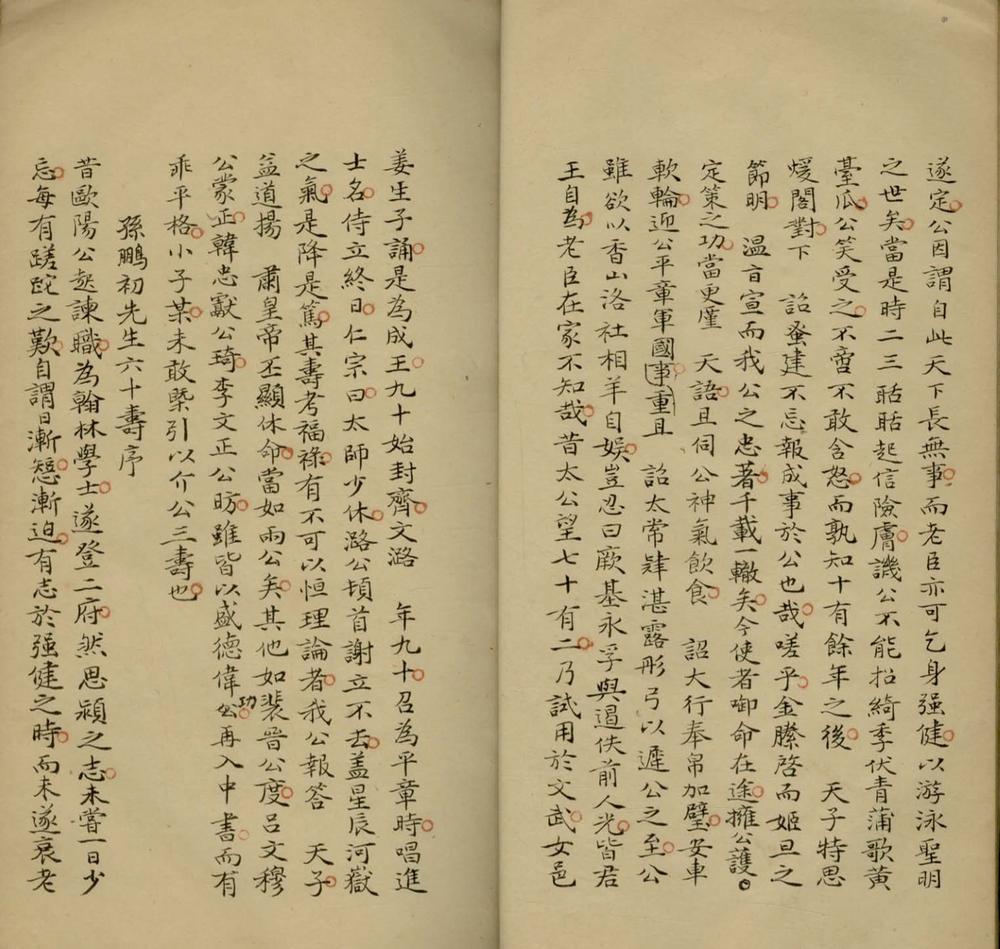 遂定公因謂自此天下長無事而老臣亦可乞身强健以游泳聖明
之世矣當是時二三聒聒起信險膚譏公不能招綺季伏青蒲歌黄
臺瓜公笑受之不啻不敢含怒而孰知十有餘年之後 天子特思
煖閣對下 詔蚤建不忘報成事於公也哉嗟乎金縢啓而姬旦之
節明 溫㫖宣而我公之忠著千載一轍矣今使者啣命在途擁公護
定策之功當更廑 天語且伺公神氣飲食 詔大行奉帛加璧安車
軟輪迎公平章軍國事重且 詔太常肄湛露彤弓以遲公之至公
雖欲以香山洛社相羊自娛豈忍曰厥基永孚與遏佚前人光皆君
王自為老臣在家不知哉昔太公望七十有二乃試用於文武女邑
姜生子誦是為成王九十始封齊文潞 年九十召為平章時唱進
士名侍立終日仁宗曰太師少休潞公頓首謝立不去盖星辰河嶽
之氣是降是篤其壽考福祿有不可以恒理論者我公報答 天子
益道揚 肅皇帝丕顯休命當如兩公矣其他如裴晉公度吕文穆
公蒙正韓忠獻公琦李文正公昉雖皆以盛德偉功再入中書而有
乖平格小子某未敢槩引以介公三壽也
孫鵬初先生六十壽序
昔歐陽公起諫職為翰林學士遂登二府然思潁之志未嘗一日少
忘每有蹉跎之歎自謂日漸愆漸迫有志於强健之時而未遂衰老